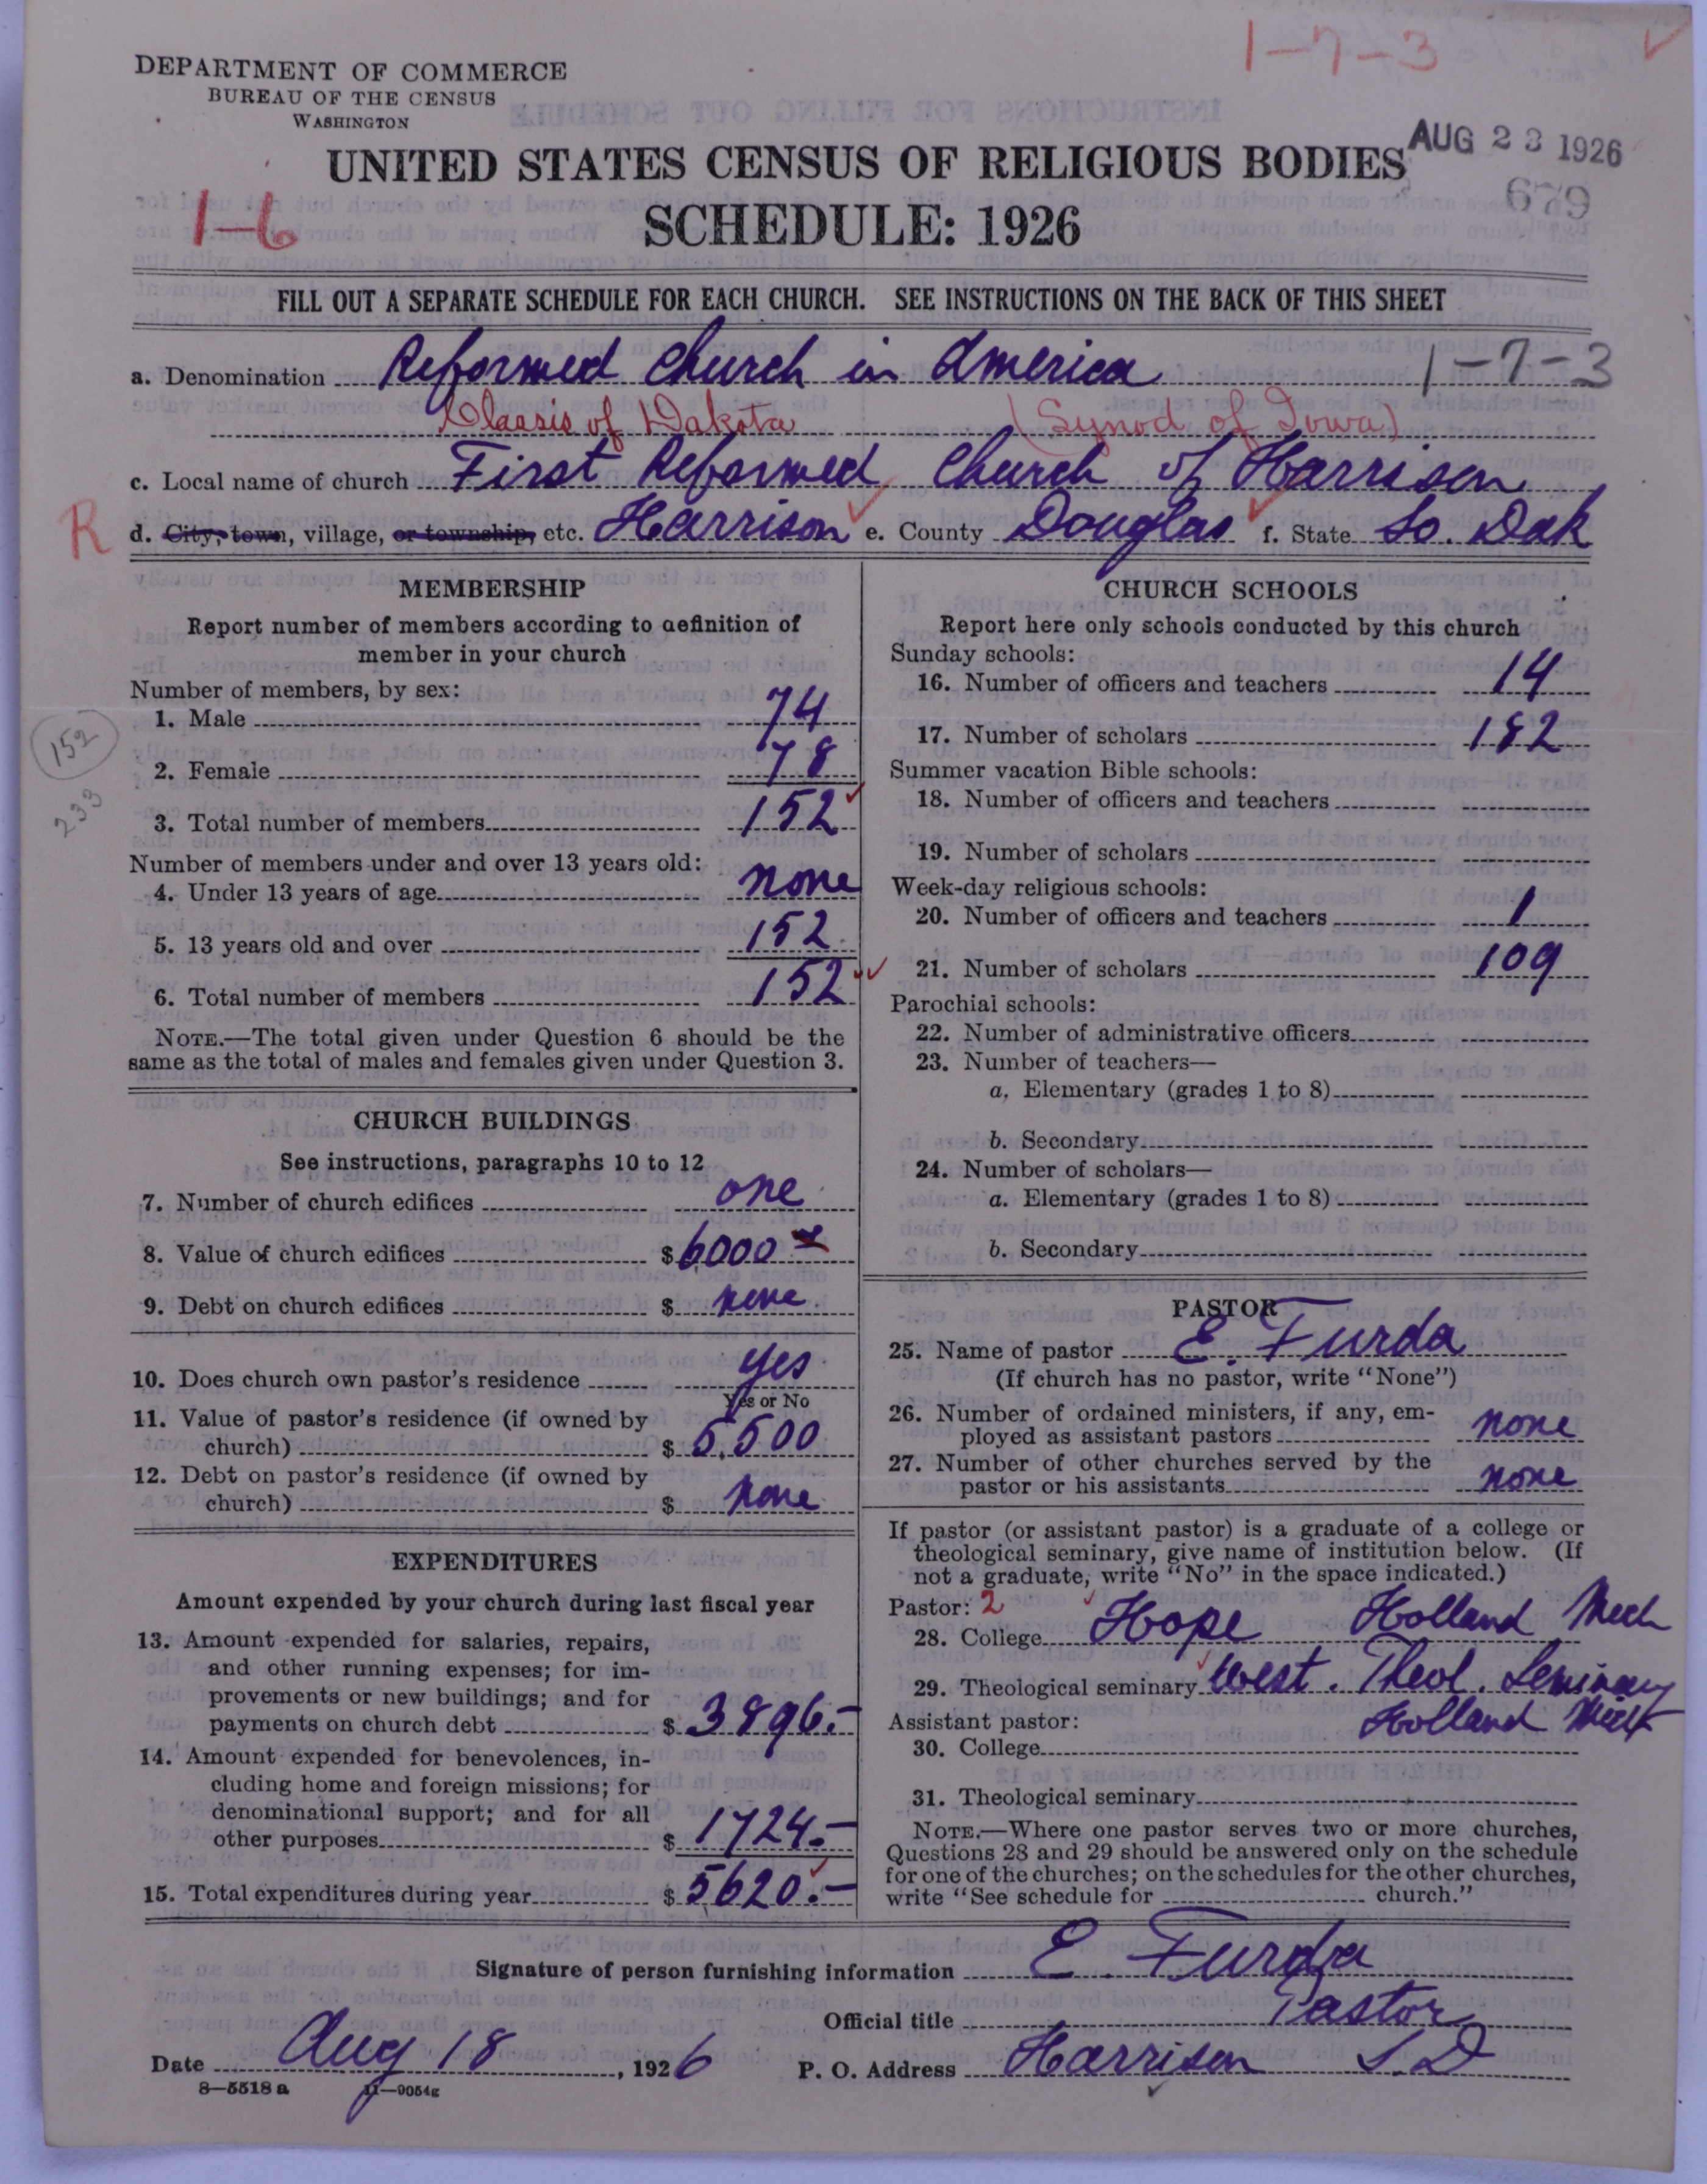 1-7-3
DEPARTMENT OF COMMERCE
BUREAU OF THE CENSUS
WASHINGTON
AUG 23 1926
679
UNITED STATES CENSUS OF RELIGIOUS BODIES
1-6
SCHEDULE: 1926
FILL OUT A SEPARATE SCHEDULE FOR EACH CHURCH. SEE INSTRUCTIONS ON THE BACK OF THIS SHEET
a. Denomination Reformed Church in America 1-7-3
Classis of Dakota (Synod of Iowa)
c. Local name of church First Reformed Church of Harrison
R d. City, town, village, or township, etc. Harrison e. County Douglas f. State So. Dak
MEMBERSHIP
Report number of members according to definition of
member in your church
Number of members, by sex:
1. Male 74
2. Female 78
152
233
3. Total number of members 152
Number of members under and over 13 years old:
4. Under 13 years of age none
5. 13 years old and over 152
6. Total number of members 152
NOTE.—The total given under Question 6 should be the
same as the total of males and females given under Question 3.
CHURCH BUILDINGS
See instructions, paragraphs 10 to 12
7. Number of church edifices one
8. Value of church edifices $ 6000
9. Debt on church edifices $ none
10. Does church own pastor's residence yes
Yes or No
11. Value of pastor's residence (if owned by
church) $ 5,500
12. Debt on pastor's residence (if owned by
church) $ none
EXPENDITURES
Amount expended by your church during last fiscal year
13. Amount expended for salaries, repairs,
and other running expenses; for im-
provements or new buildings; and for
payments on church debt $ 3896.-
14. Amount expended for benevolences, in-
cluding home and foreign missions; for
denominational support; and for all
other purposes $ 1724.-
15. Total expenditures during year $ 5620.-
CHURCH SCHOOLS
Report here only schools conducted by this church
Sunday schools:
16. Number of officers and teachers 14
17. Number of scholars 182
Summer vacation Bible schools:
18. Number of officers and teachers
19. Number of scholars
Week-day religious schools:
20. Number of officers and teachers 1
21. Number of scholars 109
Parochial schools:
22. Number of administrative officers
23. Number of teachers—
a. Elementary (grades 1 to 8)
b. Secondary
24. Number of scholars—
a. Elementary (grades 1 to 8)
b. Secondary
PASTOR
25. Name of pastor E. Furda
(If church has no pastor, write "None")
26. Number of ordained ministers, if any, em-
ployed as assistant pastors none
27. Number of other churches served by the
pastor or his assistants none
If pastor (or assistant pastor) is a graduate of a college or
theological seminary, give name of institution below. (If
not a graduate, write "No" in the space indicated.)
Pastor: 2
28. College Hope Holland Mich
29. Theological seminary West. Theol. Seminary
Holland Mich
Assistant pastor:
30. College
31. Theological seminary
NOTE.—Where one pastor serves two or more churches,
Questions 28 and 29 should be answered only on the schedule
for one of the churches; on the schedules for the other churches,
write "See schedule for church."
Signature of person furnishing information E. Furda
Official title Pastor
Date Aug 18, 1926 P. O. Address Harrison S.D
8—5518 a 11—9054g